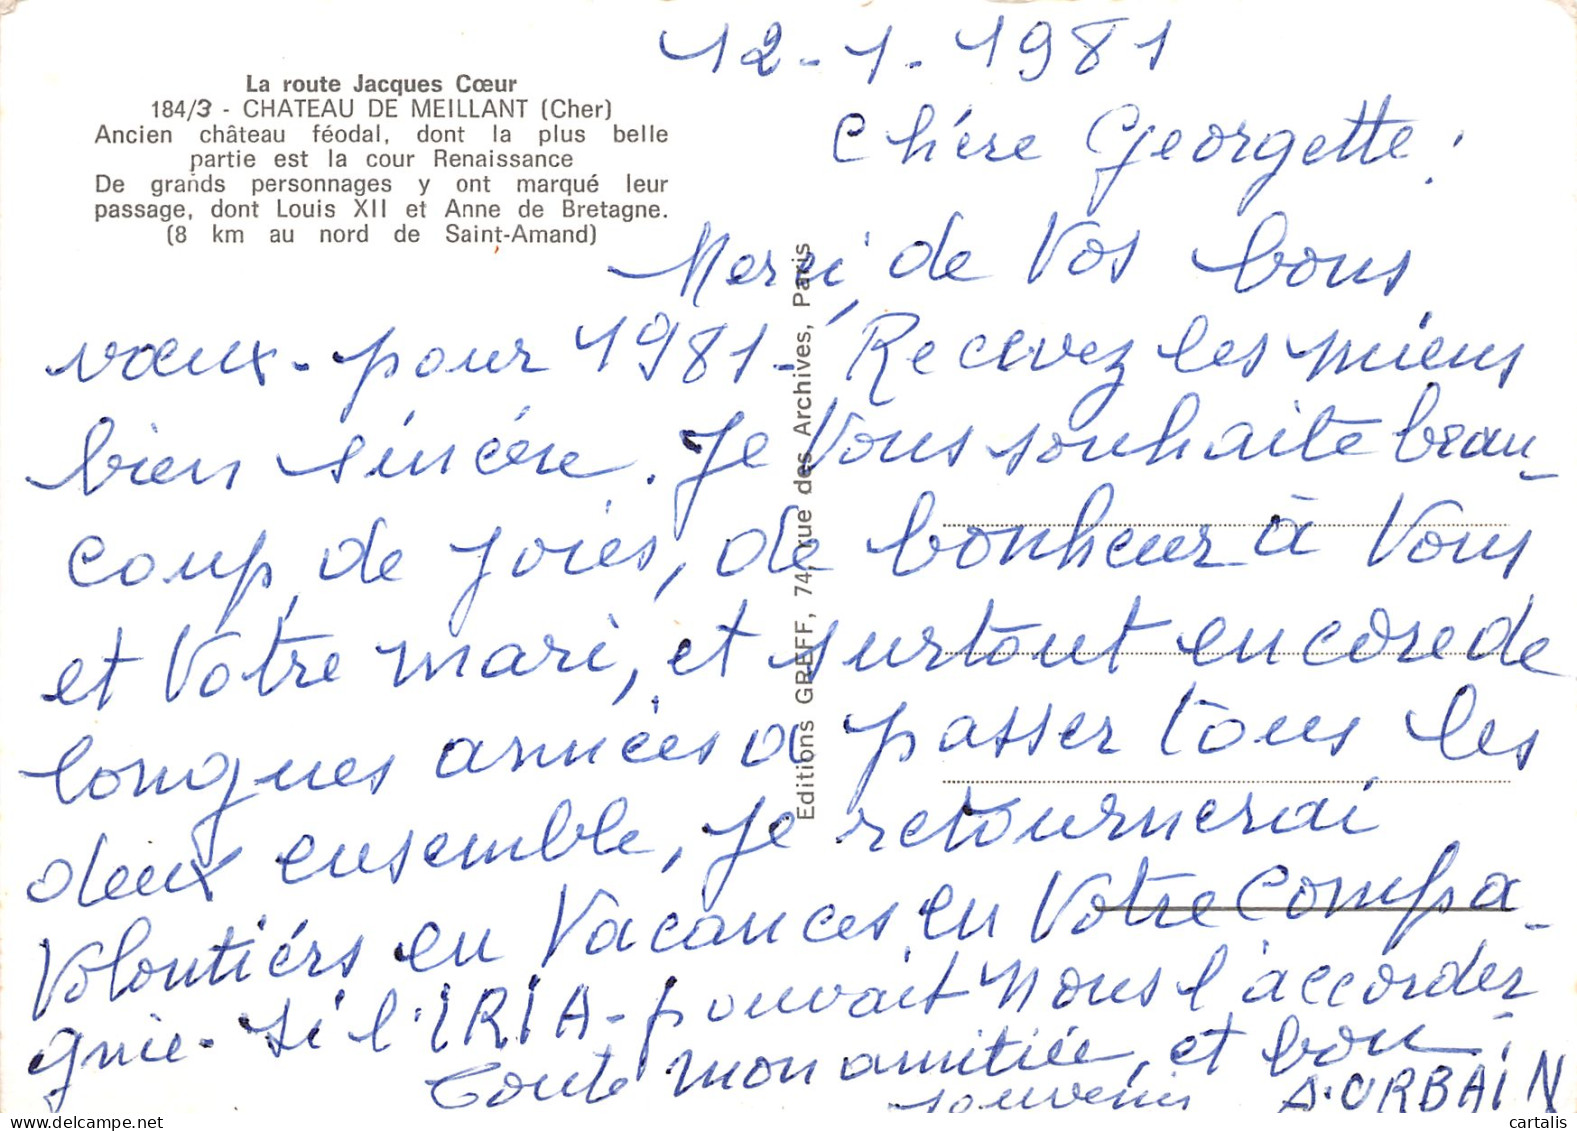 12-1-1981
La route Jacques Cœur
184/3 - CHATEAU DE MEILLANT (Cher)
Ancien château féodal, dont la plus belle
partie est la cour Renaissance
De grands personnages y ont marqué leur
passage, dont Louis XII et Anne de Bretagne.
(8 km au nord de Saint-Amand)
Chére Georgette:
Merci, de Vos bons
vœux - pour 1981 - Recevez les miens
bien sincére. Je Vous souhaite beau-
coup, de joies, de bonheur à Vous
et Votre mari, et surtout encore de
longues années a passer tous les
deux ensemble, je retournerai
Volontiérs en Vacances en Votre Compa-
gnie - Si l'IRIA - pouvait nous l'accorder
Toute mon amitiée, et bon
souvenir A. URBAIN
Editions GREFF, 74, rue des Archives, Paris
cartalis